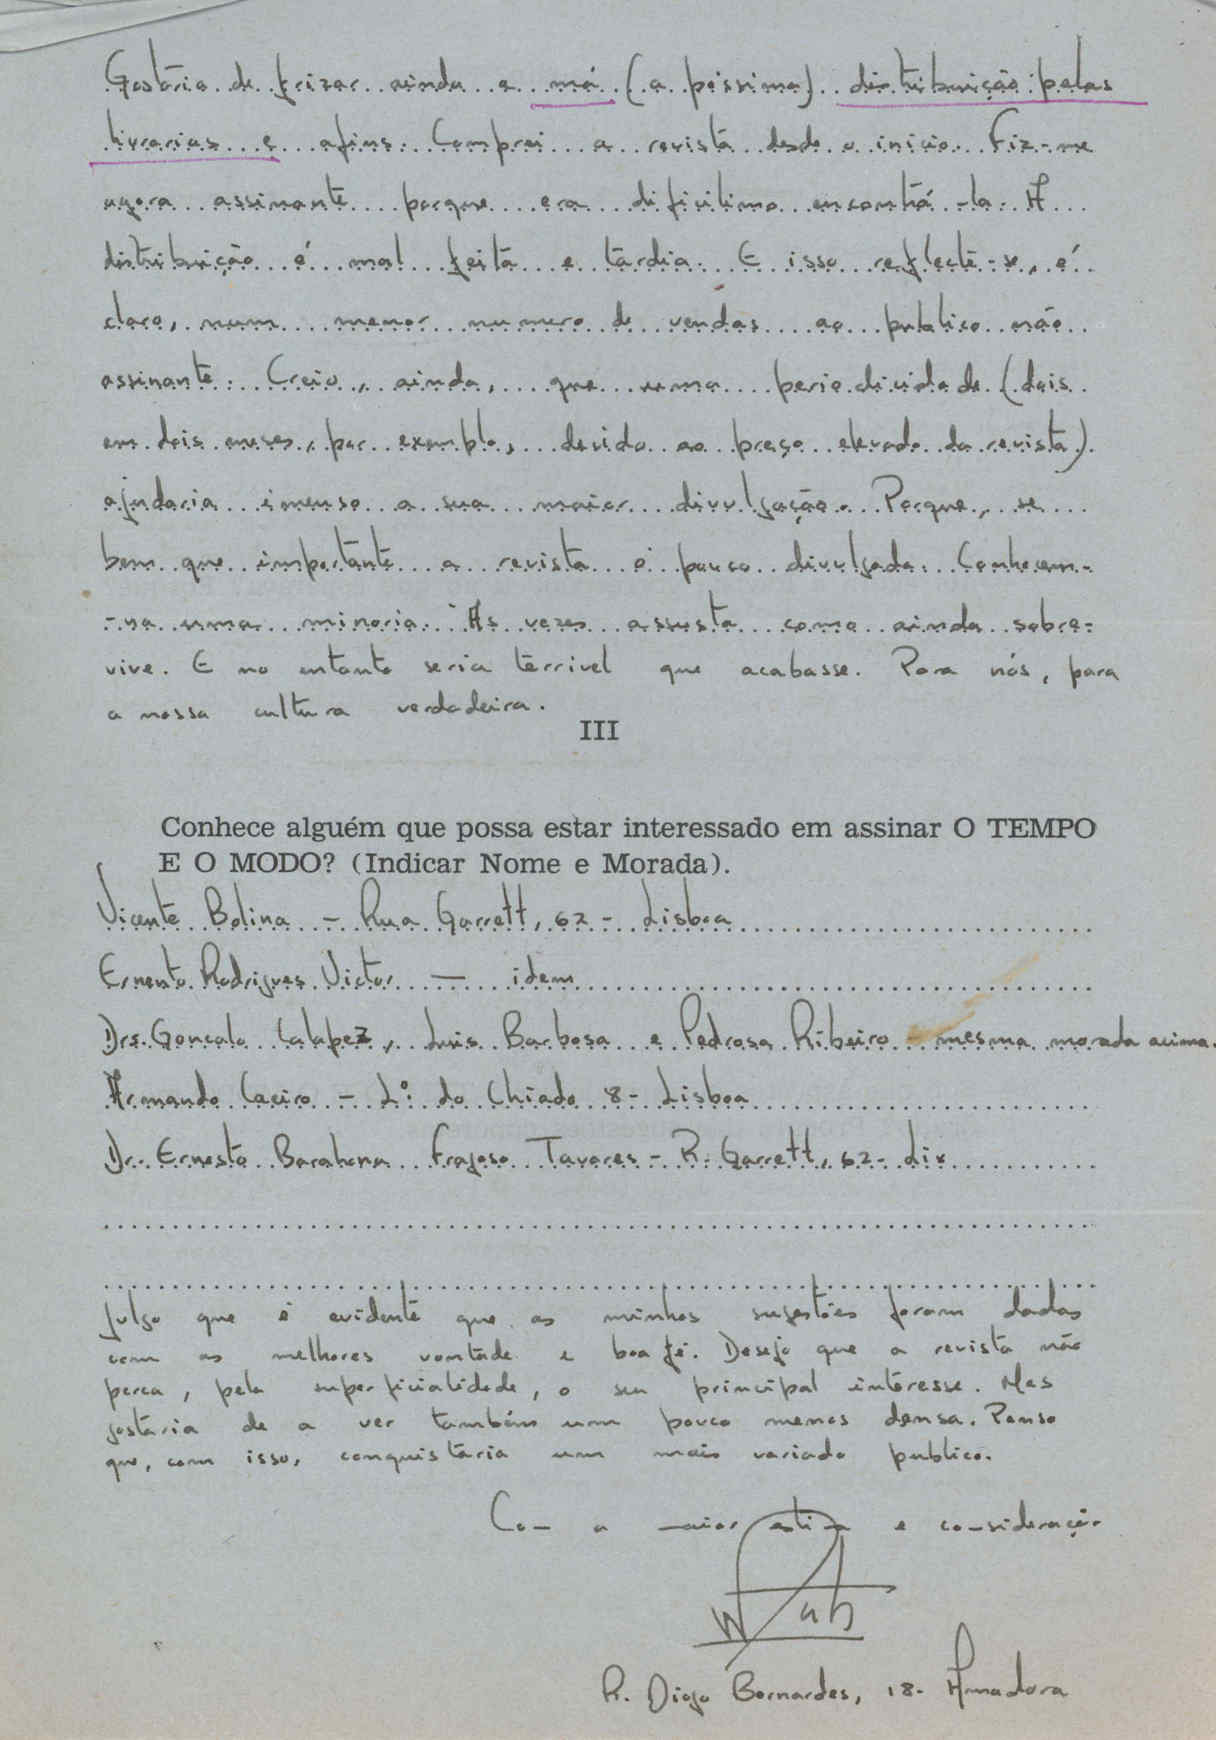 Gostaria de frizar ainda a má (a péssima) distribuição pelas
livrarias e afins. Comprei a revista desde o inicio. Fiz-me
agora assinante porque era dificilimo encontrá-la. A
distribuição é mal feita e tardia. E isso reflecte-se, é
claro, num menor numero de vendas ao publico não
assinante. Creio, ainda, que uma periodicidade (dois
em dois meses, por exemplo, devido ao preço elevado da revista)
ajudaria imenso a sua maior divulgação. Porque, se
bem que importante a revista é pouco divulgada. Conhecem-
-na uma minoria. Às vezes assusta como ainda sobre-
vive. E no entanto seria terrivel que acabasse. Para nós, para
a nossa cultura verdadeira.
III
Conhece alguém que possa estar interessado em assinar O TEMPO
E O MODO? (Indicar Nome e Morada).
Vicente Bolina – Rua Garrett, 62 – Lisboa
Ernesto Rodrigues Victor — idem
Drs. Gonçalo Calapez, Luis Barbosa e Pedrosa Ribeiro – mesma morada acima.
Armando Caeiro – L.º do Chiado 8 – Lisboa
Dr. Ernesto Barahona Fragoso Tavares – R. Garrett, 62 – Lix
Julgo que é evidente que as minhas sugestões foram dadas
com as melhores vontade e boa fé. Desejo que a revista não
perca, pela superficialidade, o seu principal interesse. Mas
gostaria de a ver também um pouco menos densa. Penso
que, com isso, conquistaria um mais variado publico.
Com a maior estima e consideração
R. Diogo Bernardes, 18 - Amadora